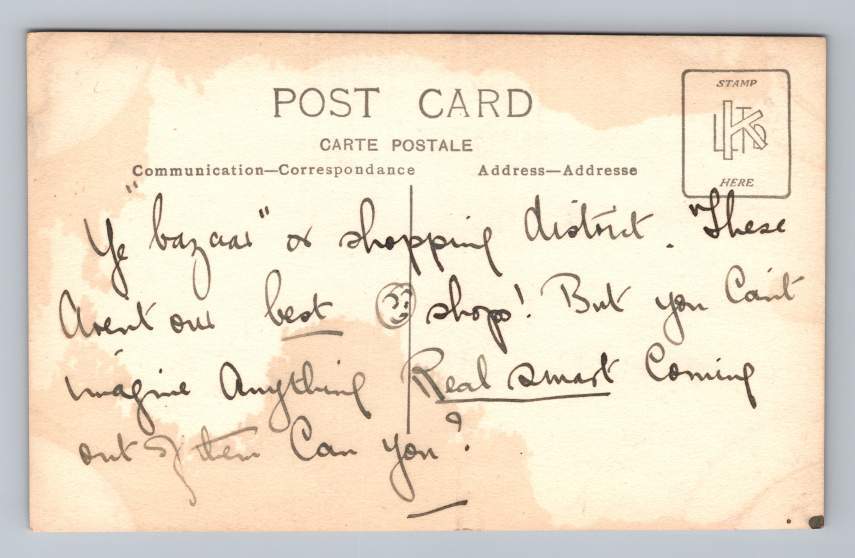 POST CARD
CARTE POSTALE
Communication—Correspondance Address—Addresse
STAMP
HERE
Ye "bazaar" or shopping district. These
Arent our best shops! But you Can't
imagine Anything Real smart Coming
out of them Can you?